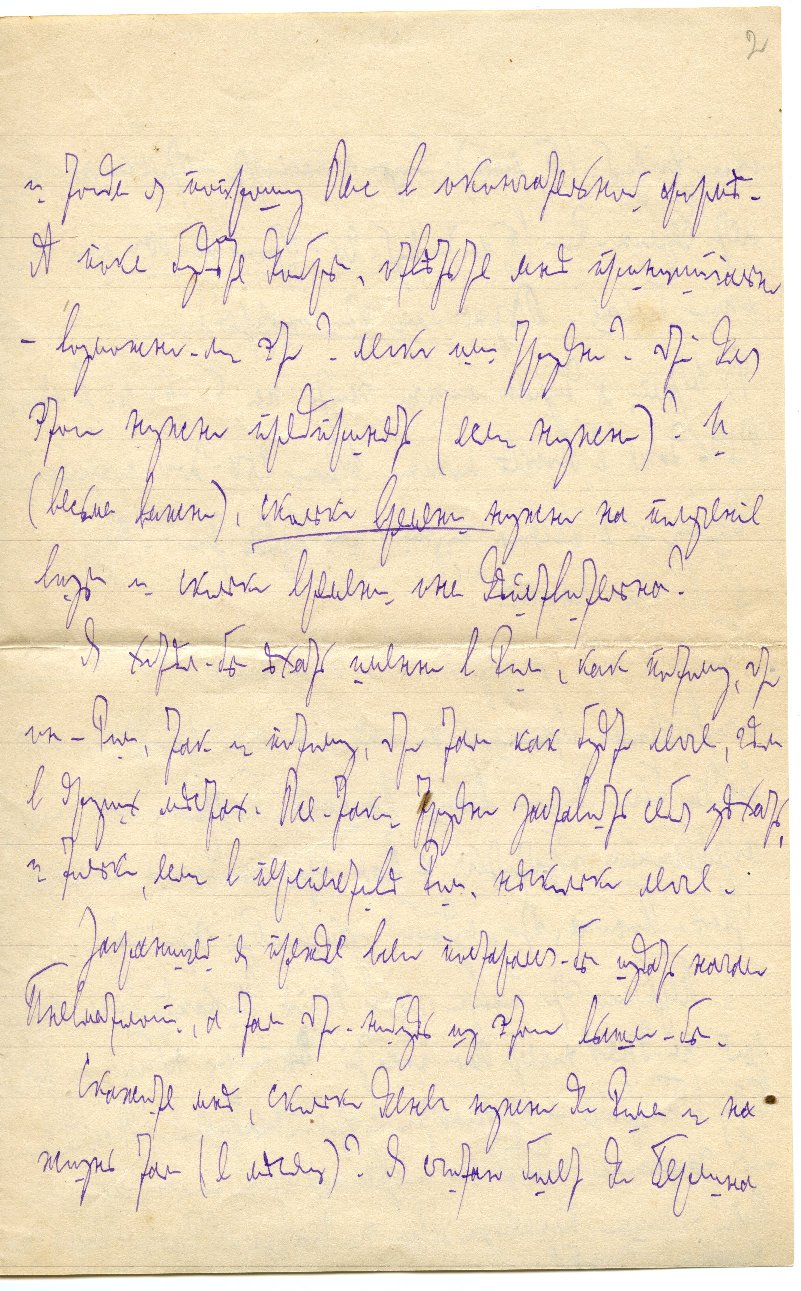 2
и тогда я попрошу Вас в окончательной формѣ.
А пока будьте добры, отвѣтьте мнѣ принципіально
– возможно-ли это? легко или трудно? что для
этого нужно предпринять (если нужно)? И
(весьма важно), сколько времени нужно на полученіе
визы и сколько времени она дѣйствительна?
Я хотѣл-бы ѣхать именно в Рим, как потому, что
он – Рим, так и потому, что там как будто легче, чѣм
в других мѣстах. Все-таки трудно заставить себя уѣхать,
и только, если в перспективѣ Рим, нѣсколько легче.
Заграницей я прежде всего постарался-бы издать начало
Пневматологіи, а там что-нибудь из этого вышло-бы.
Скажите мнѣ, сколько денег нужно до Рима и на
жизнь там (в мѣсяц)? Я считаю билет до Берлина